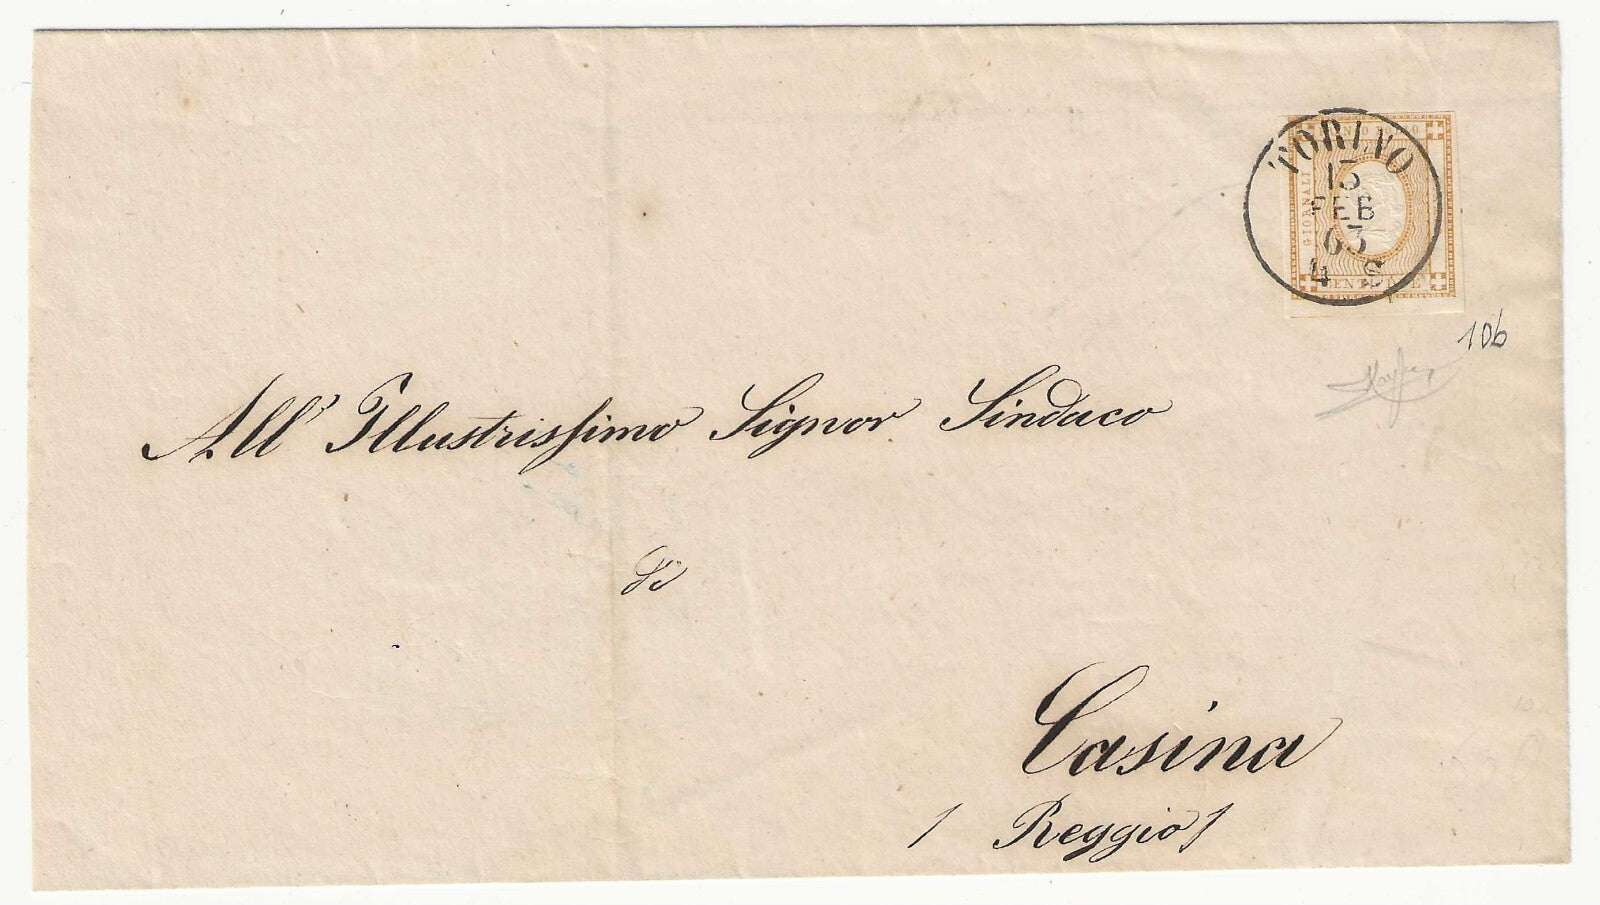 TORINO
13
FEB
63
4 S
GIORNALI
10b
All' Illustrissimo Signor Sindaco
di
Casina
/ Reggio /